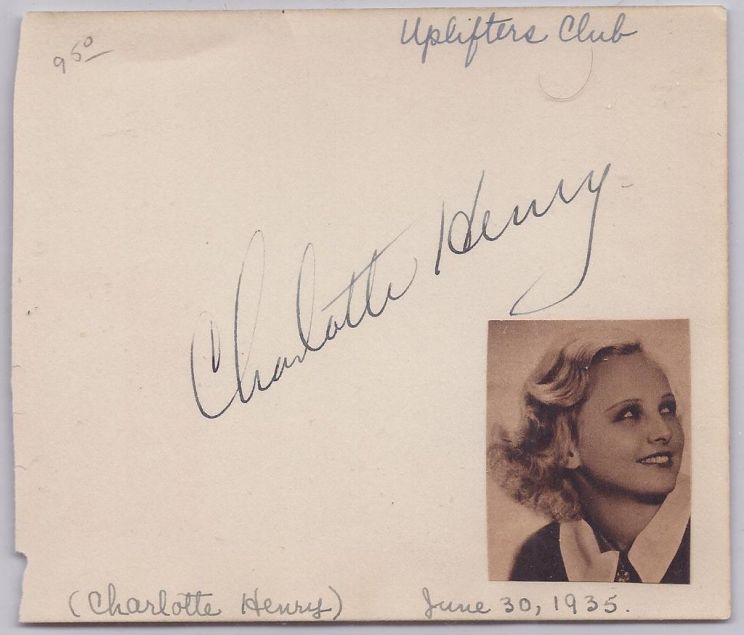 Uplifters Club
9 50
Charlotte Henry
(Charlotte Henry)
June 30, 1935.